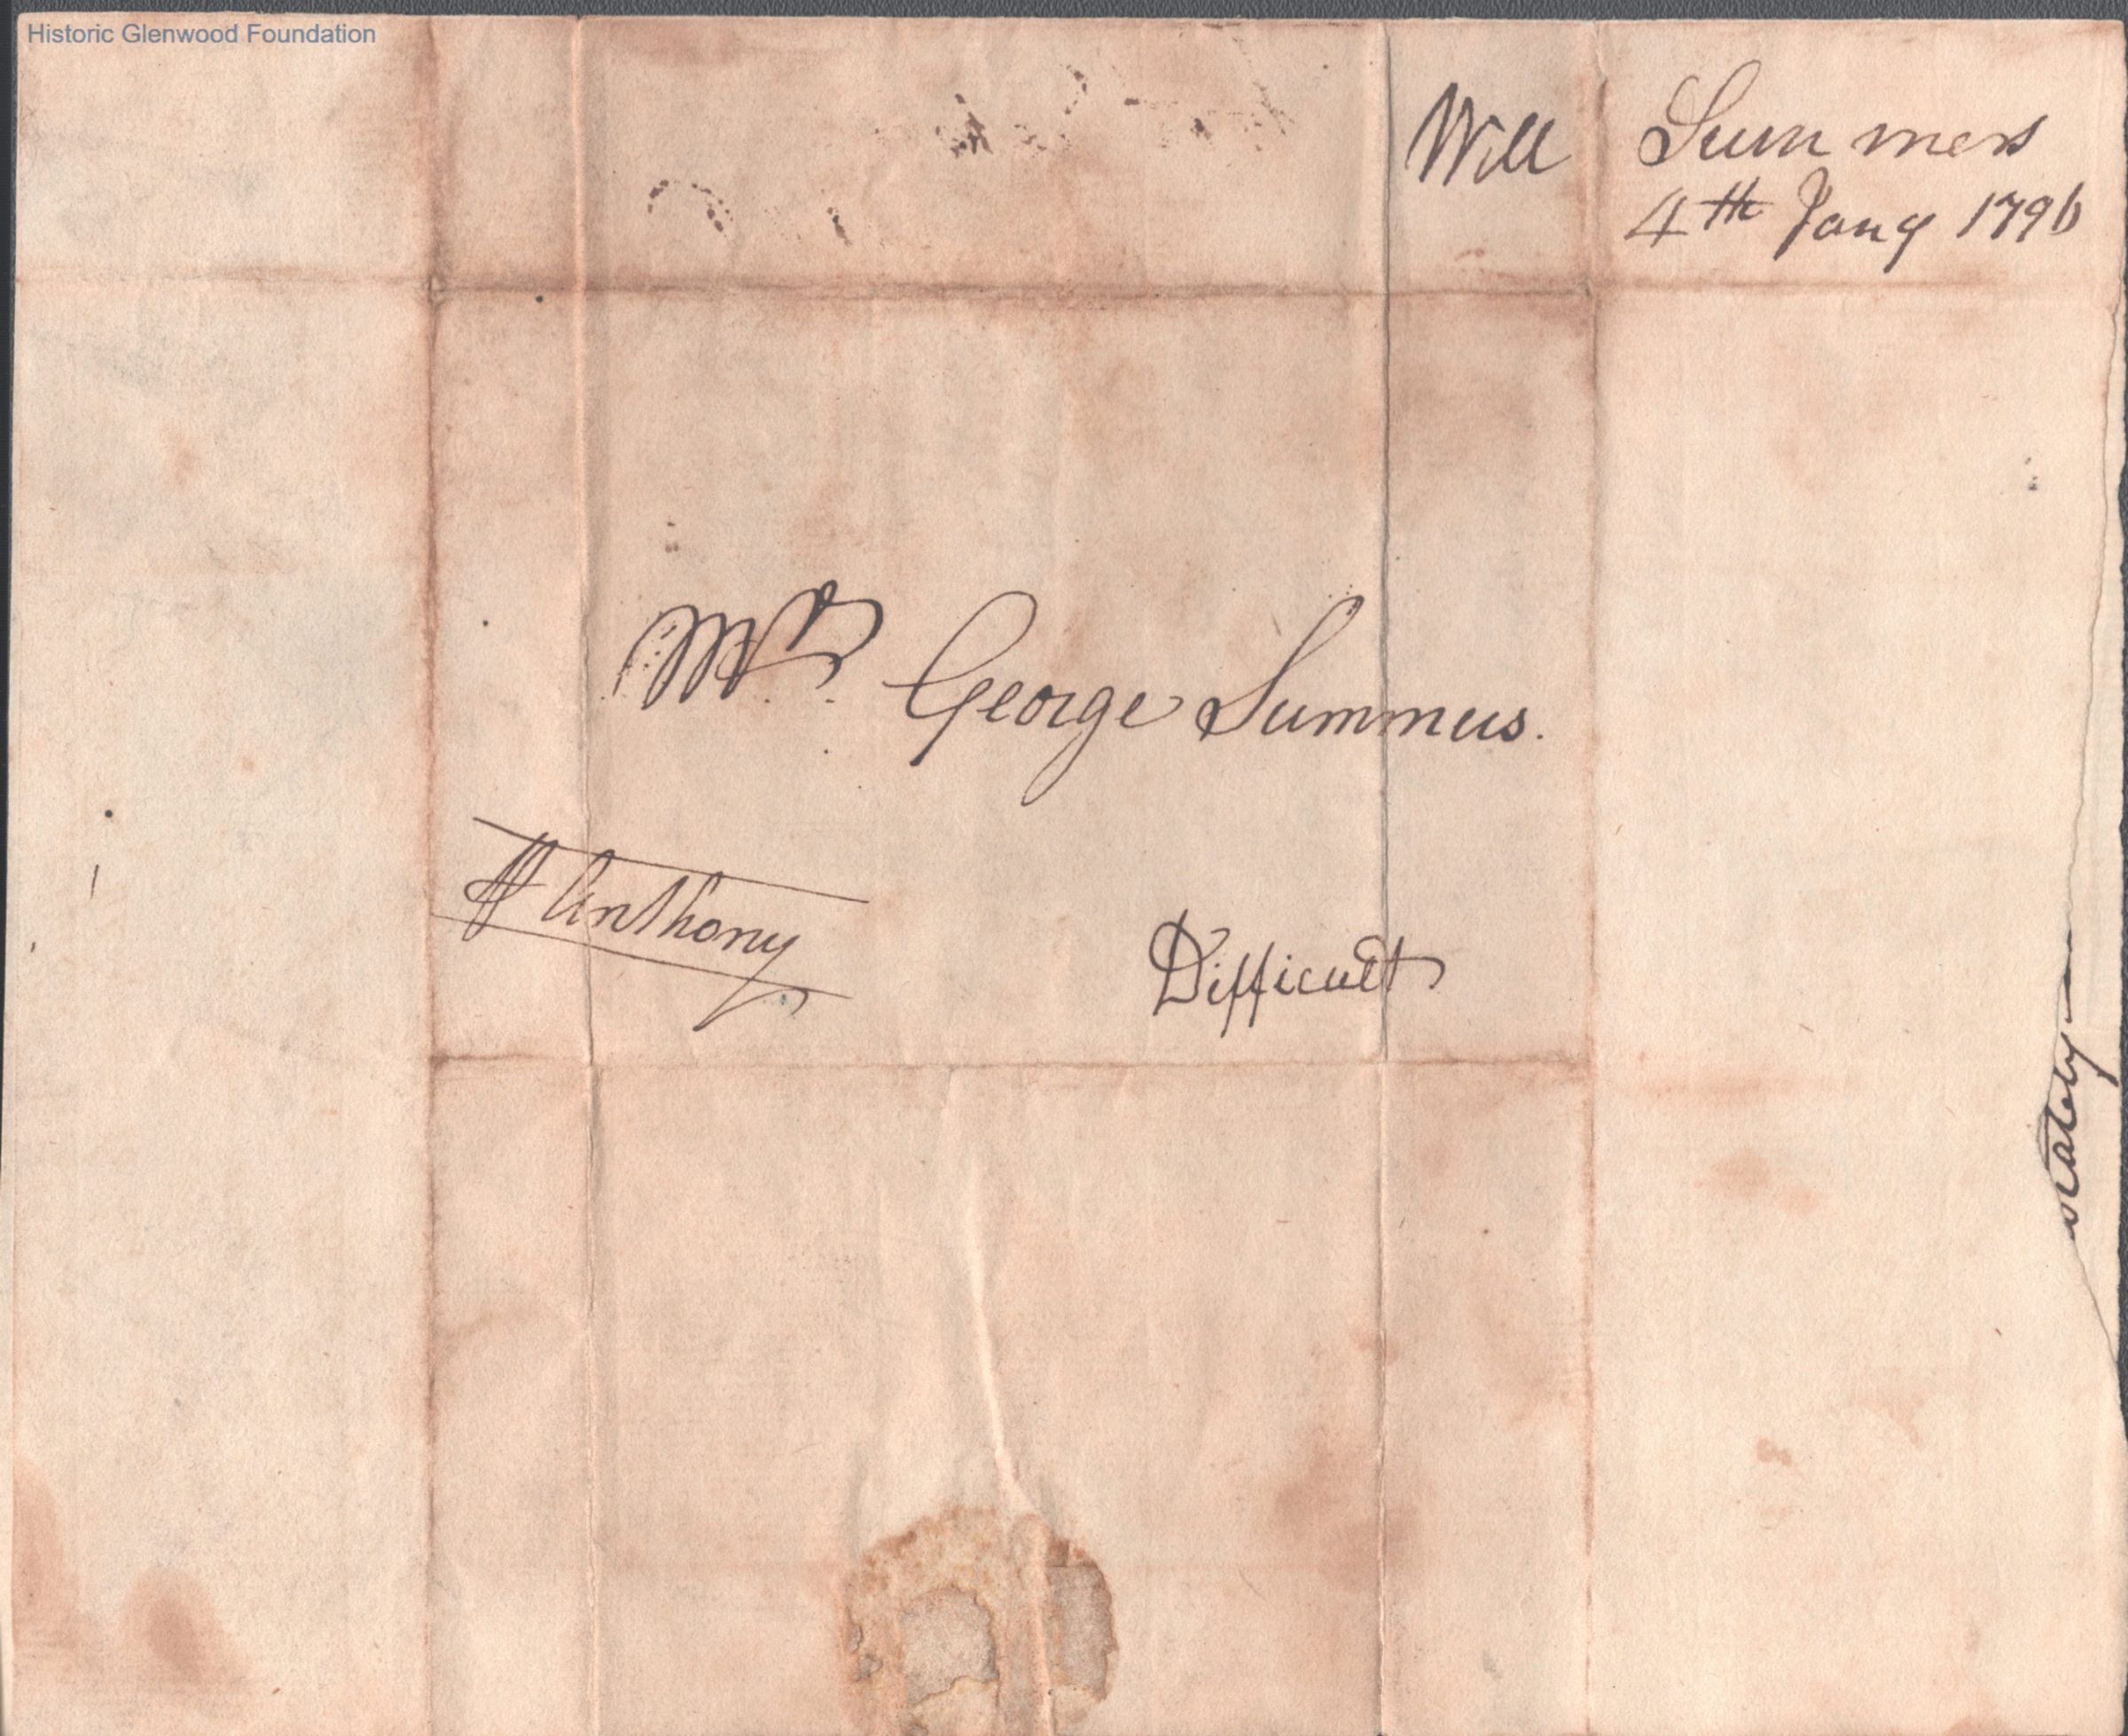 Historic Glenwood Foundation
Will Summers
4th Jany 1796
Mr. George Summers.
Anthony
Difficult